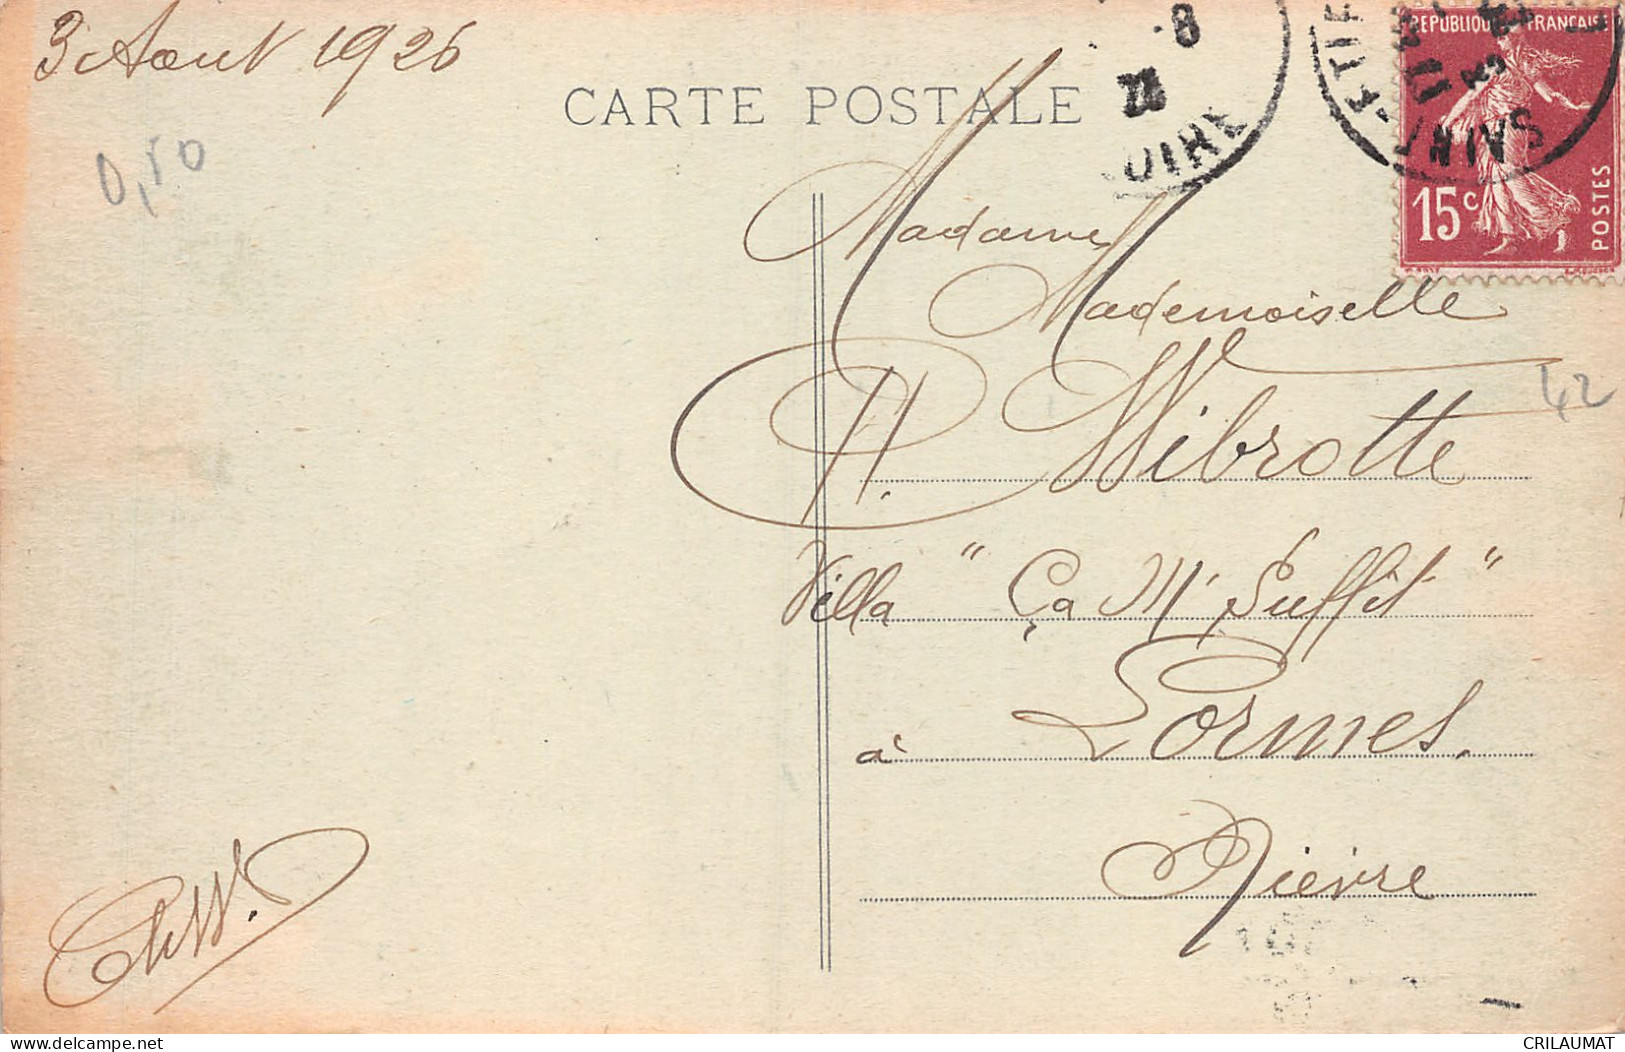 3 Aout 1926
CARTE POSTALE
RÉPUBLIQUE FRANÇAISE
15c
POSTES
SAINT-ETIE
OIRE
8
0,50
Madame
Mademoiselle
H. Wibrotte
42
Villa " Ça M' Suffit "
à Lormes.
Nièvre
delcampe.net
CRILAUMAT